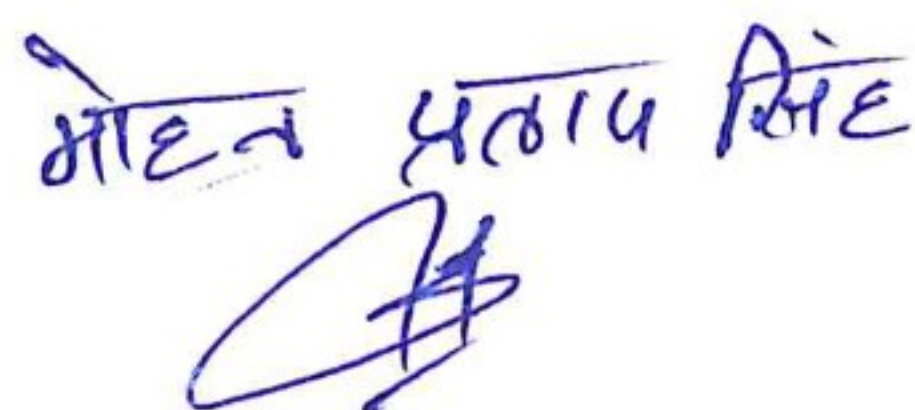 मोहन प्रताप सिंह